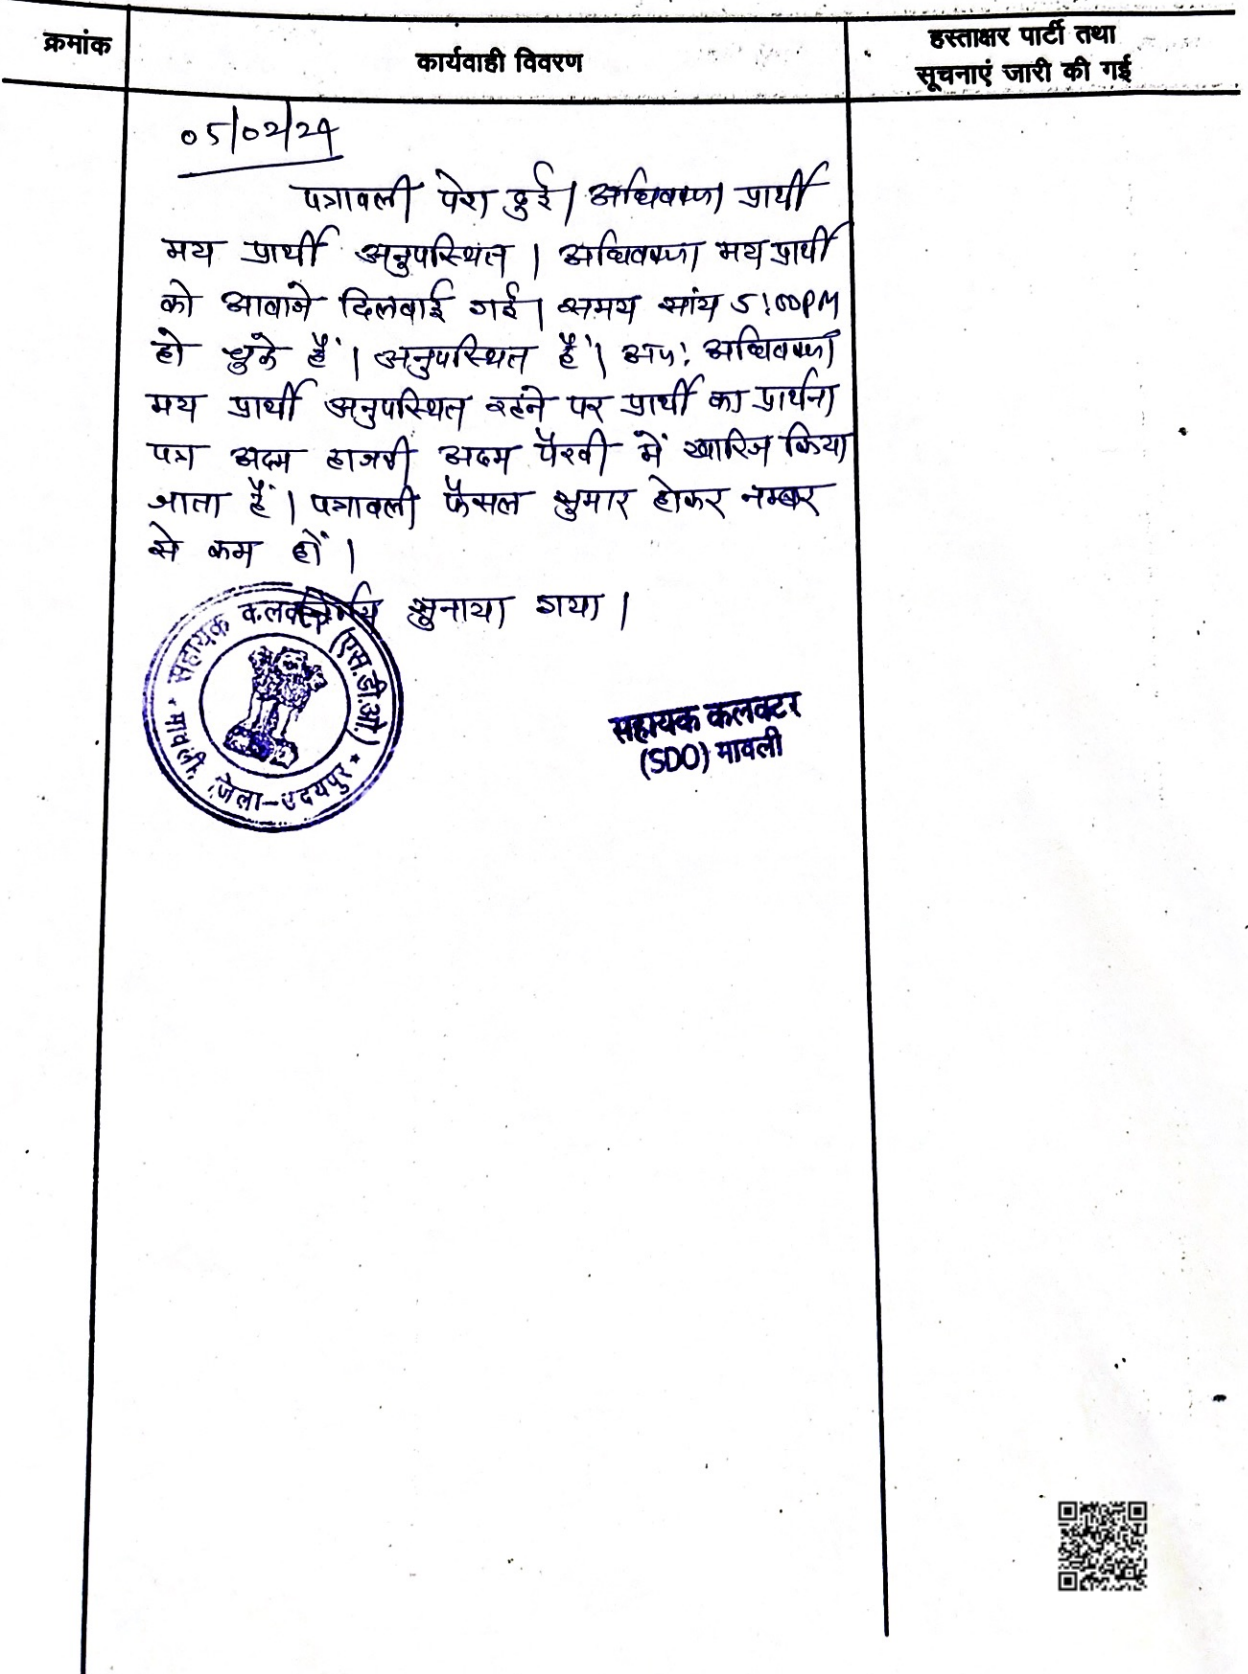 क्रमांक
कार्यवाही विवरण
हस्ताक्षर पार्टी तथा
सूचनाएं जारी की गई
05/02/24
पत्रावली पेश हुई। अधिवक्ता प्रार्थी
मय प्रार्थी अनुपस्थित। अधिवक्ता मय प्रार्थी
को आवाजे दिलवाई गई। समय सांय 5:00PM
हो चुके हैं। अनुपस्थित हैं। अतः अधिवक्ता
मय प्रार्थी अनुपस्थित रहने पर प्रार्थी का प्रार्थना
पत्र अदम हाजरी अदम पैरवी में खारिज किया
जाता हैं। पत्रावली फैसल शुमार होकर नम्बर
से कम हों।
निर्णय सुनाया गया।
सहायक कलक्टर (एस.डी.ओ.)
मावली, जिला-उदयपुर
सहायक कलक्टर
(SDO) मावली